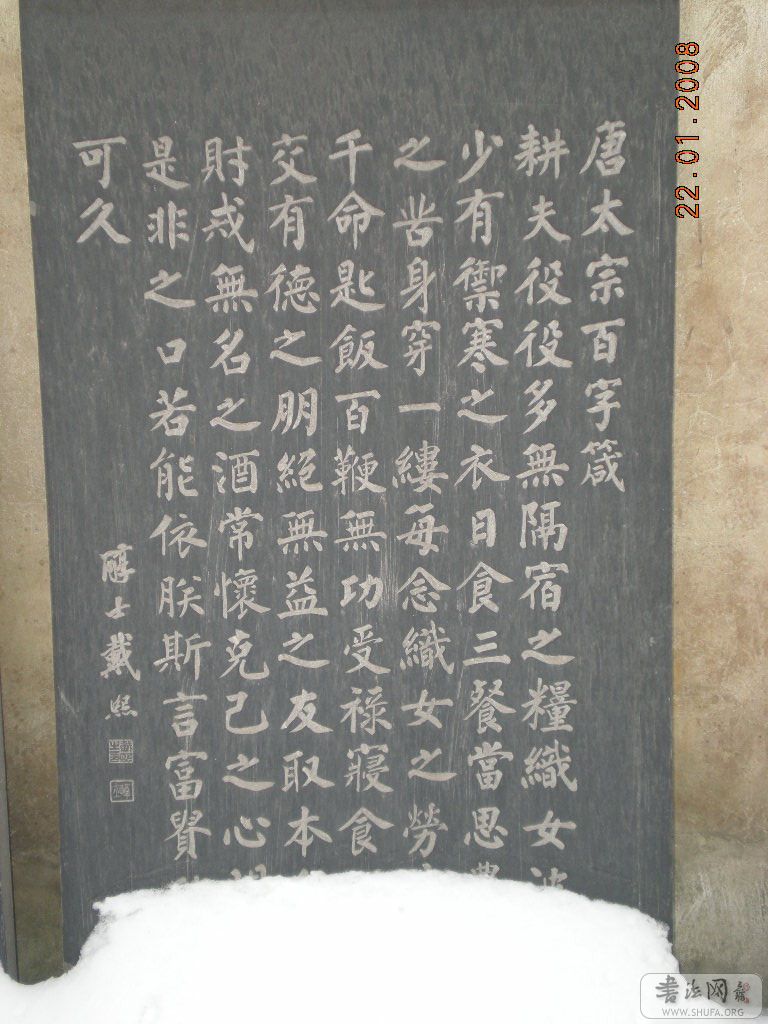 唐太宗百字箴
耕夫役役多無隔宿之糧織女波
少有禦寒之衣日食三餐當思
之苦身穿一縷每念織女之勞
千命匙飯百鞭無功受祿寢食
交有德之朋絕無益之友取本
財戒無名之酒常懷克己之心
是非之口若能依朕斯言富貴
可久
醇士戴熙
22.01.2008
书法网
WWW.SHUFA.ORG